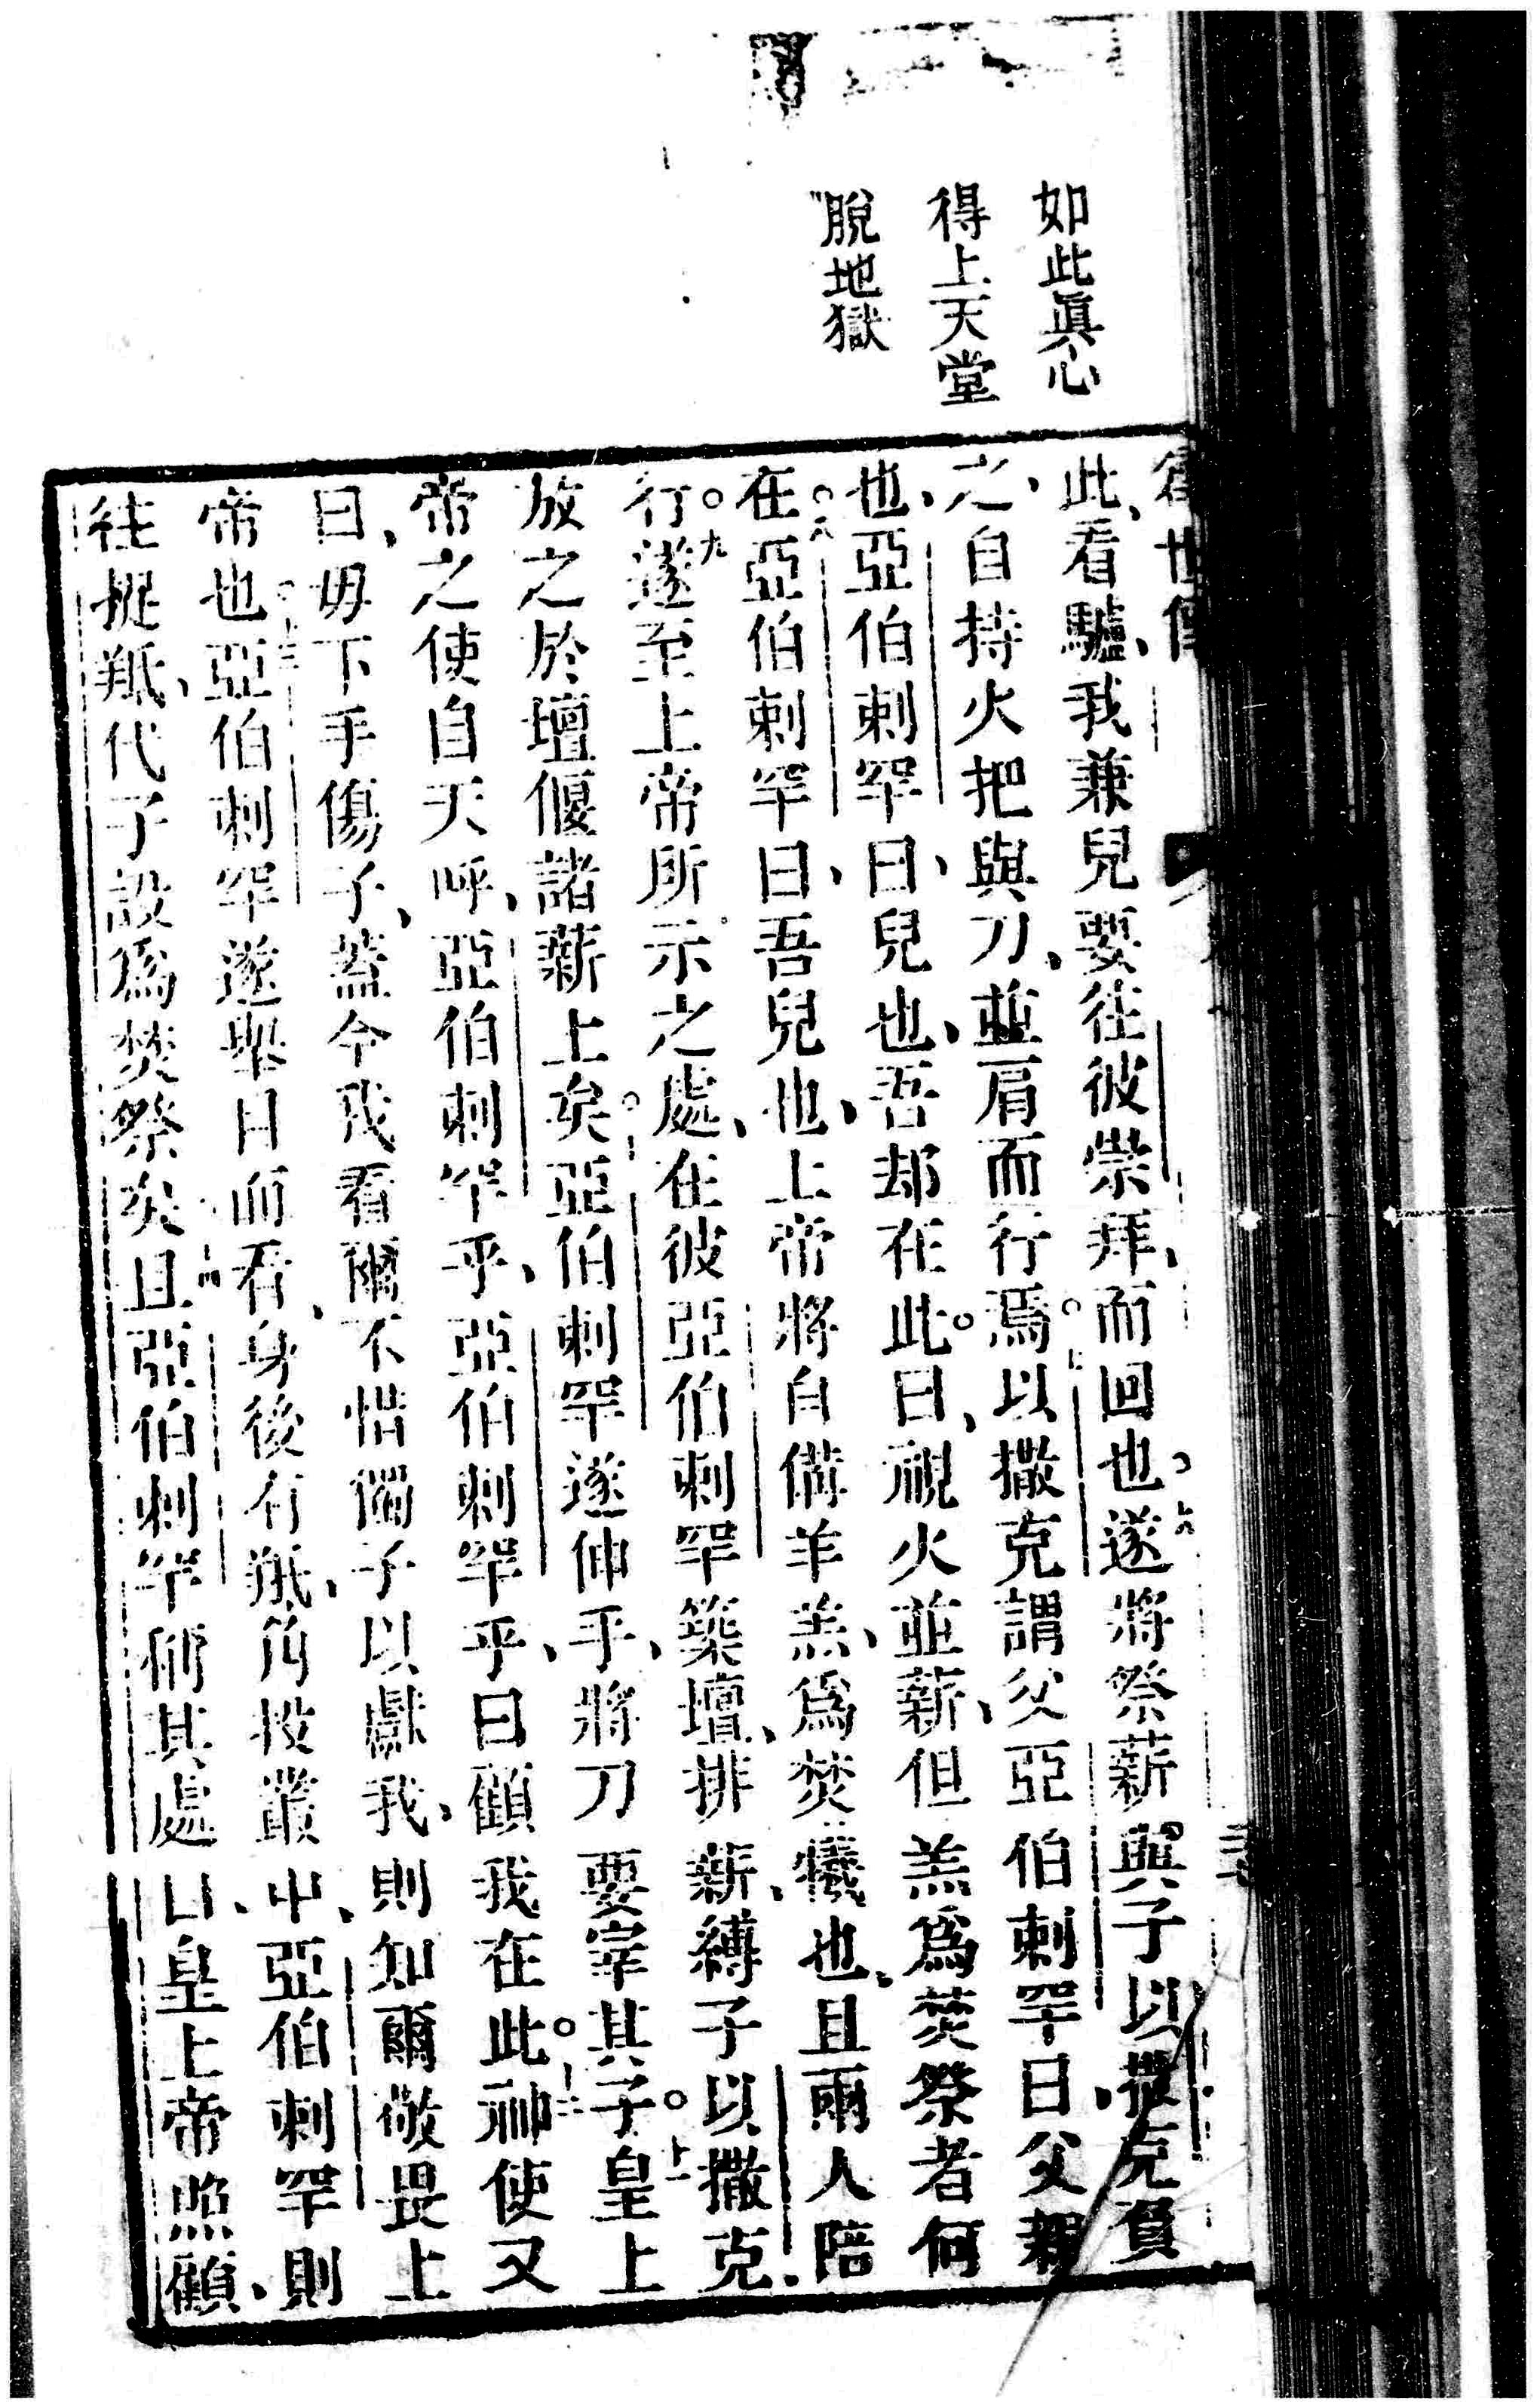 如此眞心
得上天堂
脫地獄
創世傳
此、看驢、我兼兒要往彼崇拜、而回也○六遂將祭薪與子以撒克負
之、自持火把與刀、並肩而行焉○七以撒克謂父亞伯剌罕曰、父親
也、亞伯剌罕曰、兒也、吾却在此○曰、視火並薪、但羔爲焚祭者何
在○八亞伯剌罕曰、吾兒也、上帝將自備羊羔、爲焚犧也、且兩人陪
行○九遂至上帝所示之處、在彼亞伯剌罕築壇、排薪、縛子以撒克、
放之於壇偃諸薪上矣○十亞伯剌罕遂伸手、將刀要宰其子○十一皇上
帝之使自天呼、亞伯剌罕乎、亞伯剌罕乎、曰顧我在此○十二神使又
曰、毋下手傷子、蓋今我看爾不惜獨子以獻我、則知爾敬畏上
帝也○十三亞伯剌罕遂舉目而看、身後有羝、角投叢中、亞伯剌罕則
往捉羝、代子設爲焚祭矣○十四且亞伯剌罕稱其處曰、皇上帝照顧、